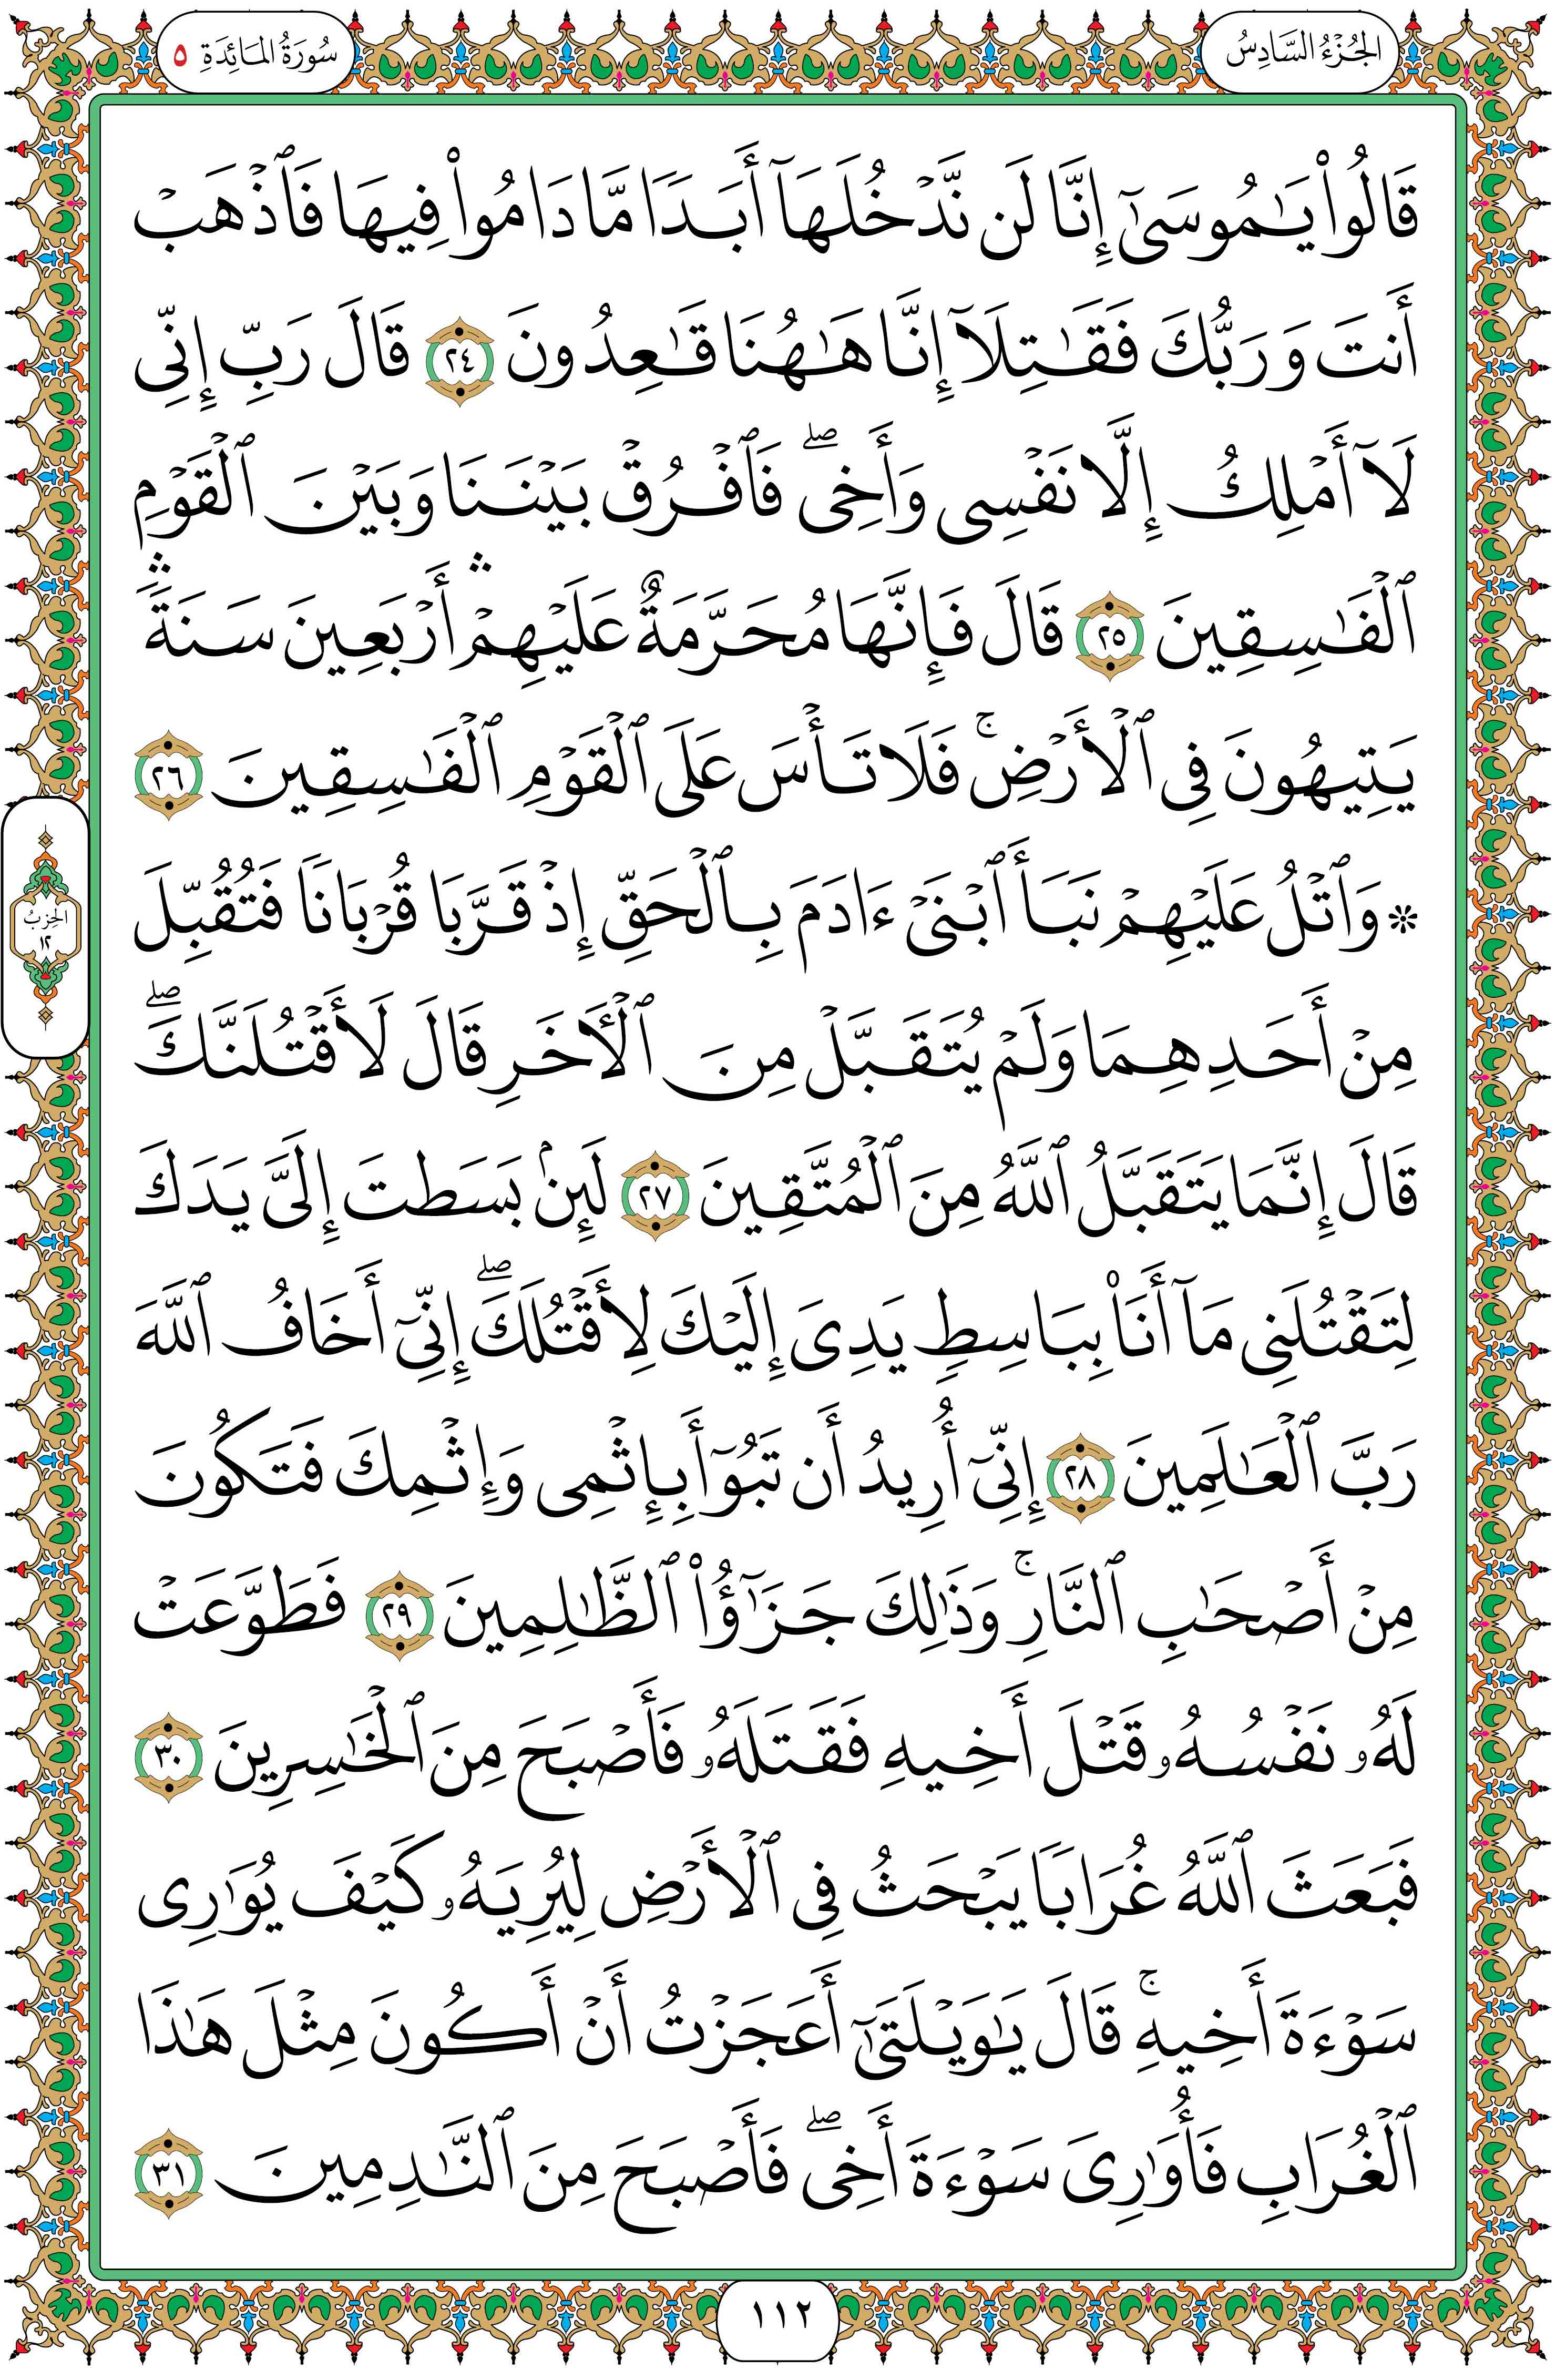 الجُزْءُ السَّادِسُ
سُورَةُ المَائِدَةِ ٥
قَالُوا۟ يَـٰمُوسَىٰٓ إِنَّا لَن نَّدْخُلَهَآ أَبَدًا مَّا دَامُوا۟ فِيهَا فَٱذْهَبْ
أَنتَ وَرَبُّكَ فَقَـٰتِلَآ إِنَّا هَـٰهُنَا قَـٰعِدُونَ ٢٤ قَالَ رَبِّ إِنِّى
لَآ أَمْلِكُ إِلَّا نَفْسِى وَأَخِى ۖ فَٱفْرُقْ بَيْنَنَا وَبَيْنَ ٱلْقَوْمِ
ٱلْفَـٰسِقِينَ ٢٥ قَالَ فَإِنَّهَا مُحَرَّمَةٌ عَلَيْهِمْ ۛ أَرْبَعِينَ سَنَةً ۛ
يَتِيهُونَ فِى ٱلْأَرْضِ ۚ فَلَا تَأْسَ عَلَى ٱلْقَوْمِ ٱلْفَـٰسِقِينَ ٢٦
الحِزْبُ
١٢
* وَٱتْلُ عَلَيْهِمْ نَبَأَ ٱبْنَىْ ءَادَمَ بِٱلْحَقِّ إِذْ قَرَّبَا قُرْبَانًا فَتُقُبِّلَ
مِنْ أَحَدِهِمَا وَلَمْ يُتَقَبَّلْ مِنَ ٱلْـَٔاخَرِ قَالَ لَأَقْتُلَنَّكَ ۖ
قَالَ إِنَّمَا يَتَقَبَّلُ ٱللَّهُ مِنَ ٱلْمُتَّقِينَ ٢٧ لَئِنۢ بَسَطتَ إِلَىَّ يَدَكَ
لِتَقْتُلَنِى مَآ أَنَا۠ بِبَاسِطٍ يَدِىَ إِلَيْكَ لِأَقْتُلَكَ ۖ إِنِّىٓ أَخَافُ ٱللَّهَ
رَبَّ ٱلْعَـٰلَمِينَ ٢٨ إِنِّىٓ أُرِيدُ أَن تَبُوٓأَ بِإِثْمِى وَإِثْمِكَ فَتَكُونَ
مِنْ أَصْحَـٰبِ ٱلنَّارِ ۚ وَذَٰلِكَ جَزَٰٓؤُا۟ ٱلظَّـٰلِمِينَ ٢٩ فَطَوَّعَتْ
لَهُۥ نَفْسُهُۥ قَتْلَ أَخِيهِ فَقَتَلَهُۥ فَأَصْبَحَ مِنَ ٱلْخَـٰسِرِينَ ٣٠
فَبَعَثَ ٱللَّهُ غُرَابًا يَبْحَثُ فِى ٱلْأَرْضِ لِيُرِيَهُۥ كَيْفَ يُوَٰرِى
سَوْءَةَ أَخِيهِ ۚ قَالَ يَـٰوَيْلَتَىٰٓ أَعَجَزْتُ أَنْ أَكُونَ مِثْلَ هَـٰذَا
ٱلْغُرَابِ فَأُوَٰرِىَ سَوْءَةَ أَخِى ۖ فَأَصْبَحَ مِنَ ٱلنَّـٰدِمِينَ ٣١
١١٢